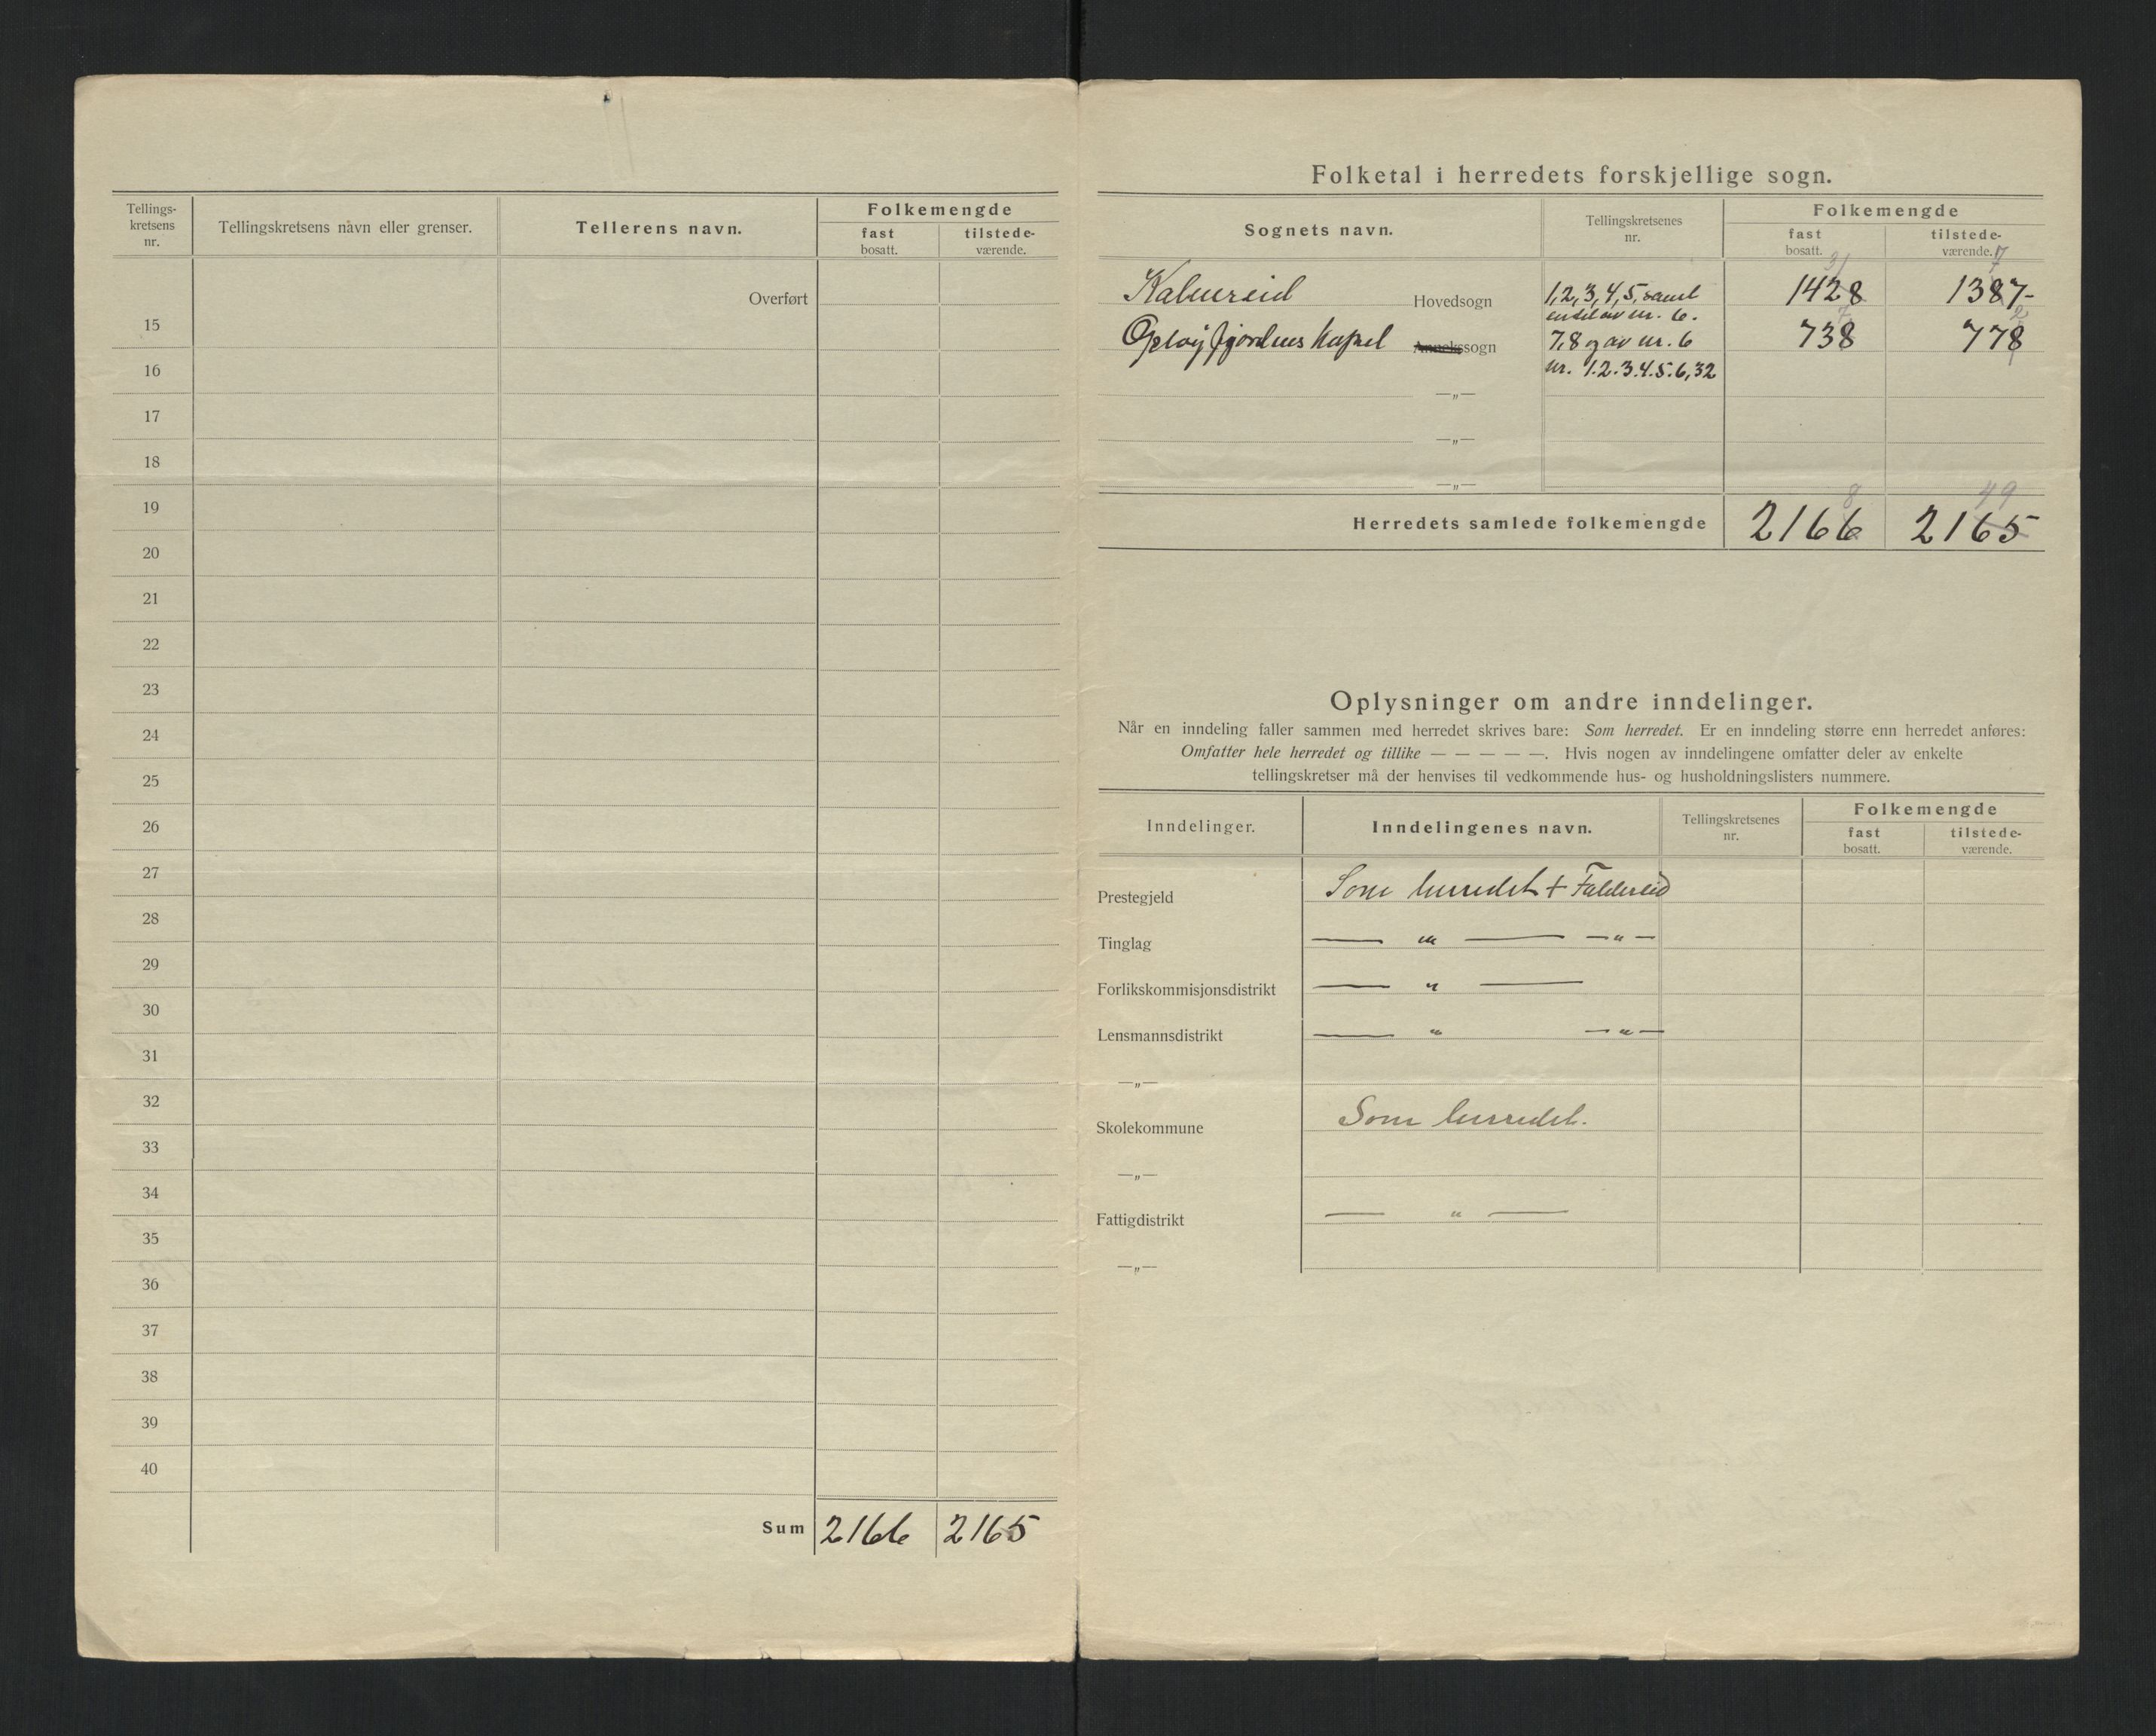 Tellings-
kretsens
nr.
Tellingskretsens navn eller grenser.
Tellerens navn.
Folkemengde
fast
bosatt.
tilstede-
værende.
Overført
15
16
17
18
19
20
21
22
23
24
25
26
27
28
29
30
31
32
33
34
35
36
37
38
39
40
Sum 2166 2165
Folketal i herredets forskjellige sogn.
Sognets navn.
Tellingskretsenes
nr.
Folkemengde
fast
bosatt.
tilstede-
værende.
31 7
Hovedsogn 1,2,3,4,5, samt 1428 1387-
en del av nr. 6.
7 2
kapel Annekssogn 7,8 og av nr. 6 738 778
nr. 1.2.3.4.5.6,32
—„—
—„—
—„—
8 49
Herredets samlede folkemengde 2166 2165
Oplysninger om andre inndelinger.
Når en inndeling faller sammen med herredet skrives bare: Som herredet. Er en inndeling større enn herredet anføres:
Omfatter hele herredet og tillike — — — — —. Hvis nogen av inndelingene omfatter deler av enkelte
tellingskretser må der henvises til vedkommende hus- og husholdningslisters nummere.
Inndelinger.
Inndelingenes navn.
Tellingskretsenes
nr.
Folkemengde
fast
bosatt.
tilstede-
værende.
Prestegjeld Som herredet +
Tinglag — „ — — „ —
Forlikskommisjonsdistrikt — „ —
Lensmannsdistrikt — „ — „ —
—„—
Skolekommune Som herredet.
—„—
Fattigdistrikt — „ —
—„—